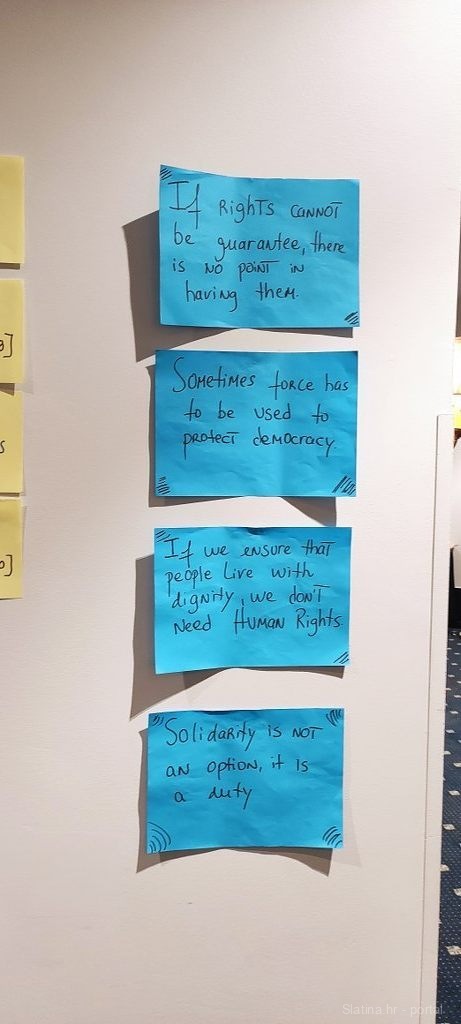 If Rights cannot
be guarantee, there
is no point in
having them.
Sometimes force has
to be used to
protect democracy
If we ensure that
people live with
dignity, we don't
need Human Rights.
Solidarity is not
an option, it is
a duty
g]
s
o]
Slatina.hr - portal